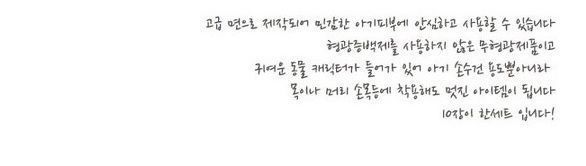 고급 면으로 제작되어 민감한 아기피부에 안심하고 사용할 수 있습니다
형광증백제를 사용하지 않은 무형광제품이고
귀여운 동물 캐릭터가 들어가 있어 아기 손수건 용도뿐아니라
목이나 머리 손목등에 착용해도 멋진 아이템이 됩니다
10장이 한세트 입니다!